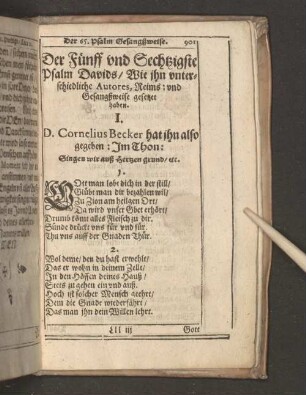 Der 65. Psalm Gesangßweise. 901
Der Fünff vnd Sechtzigste
Psalm Davids / Wie jhn vnter-
schiedliche Autores, Reims: vnd
Gesangßweise gesetzet
haben.
I.
D. Cornelius Becker hat jhn also
gegeben: Jm Thon:
Singen wir auß Hertzen grund / etc.
1.
GOtt man lobt dich in der still /
Glübt man dir bezahlen wil /
Zu Zion am heilgen Ort /
Da wird vnser Gbet erhört /
Drumb kömt alles Fleisch zu dir.
Sünde drückt vns für vnd für.
Thu vns auff der Gnaden Thür.
2.
Wol deme / den du hast erwehlt /
Das er wohn in deinem Zelt /
Jn den Höffen deines Hauß /
Stets zu gehen ein vnd auß.
Hoch ist solcher Mensch geehrt /
Dem die Gnade wiederfährt /
Das man jhn dein Willen lehrt.
Lll iij Gott